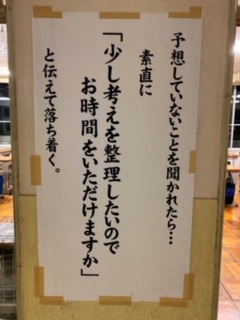 予想していないことを聞かれたら…
素直に
「少し考えを整理したいので
お時間をいただけますか」
と伝えて落ち着く。